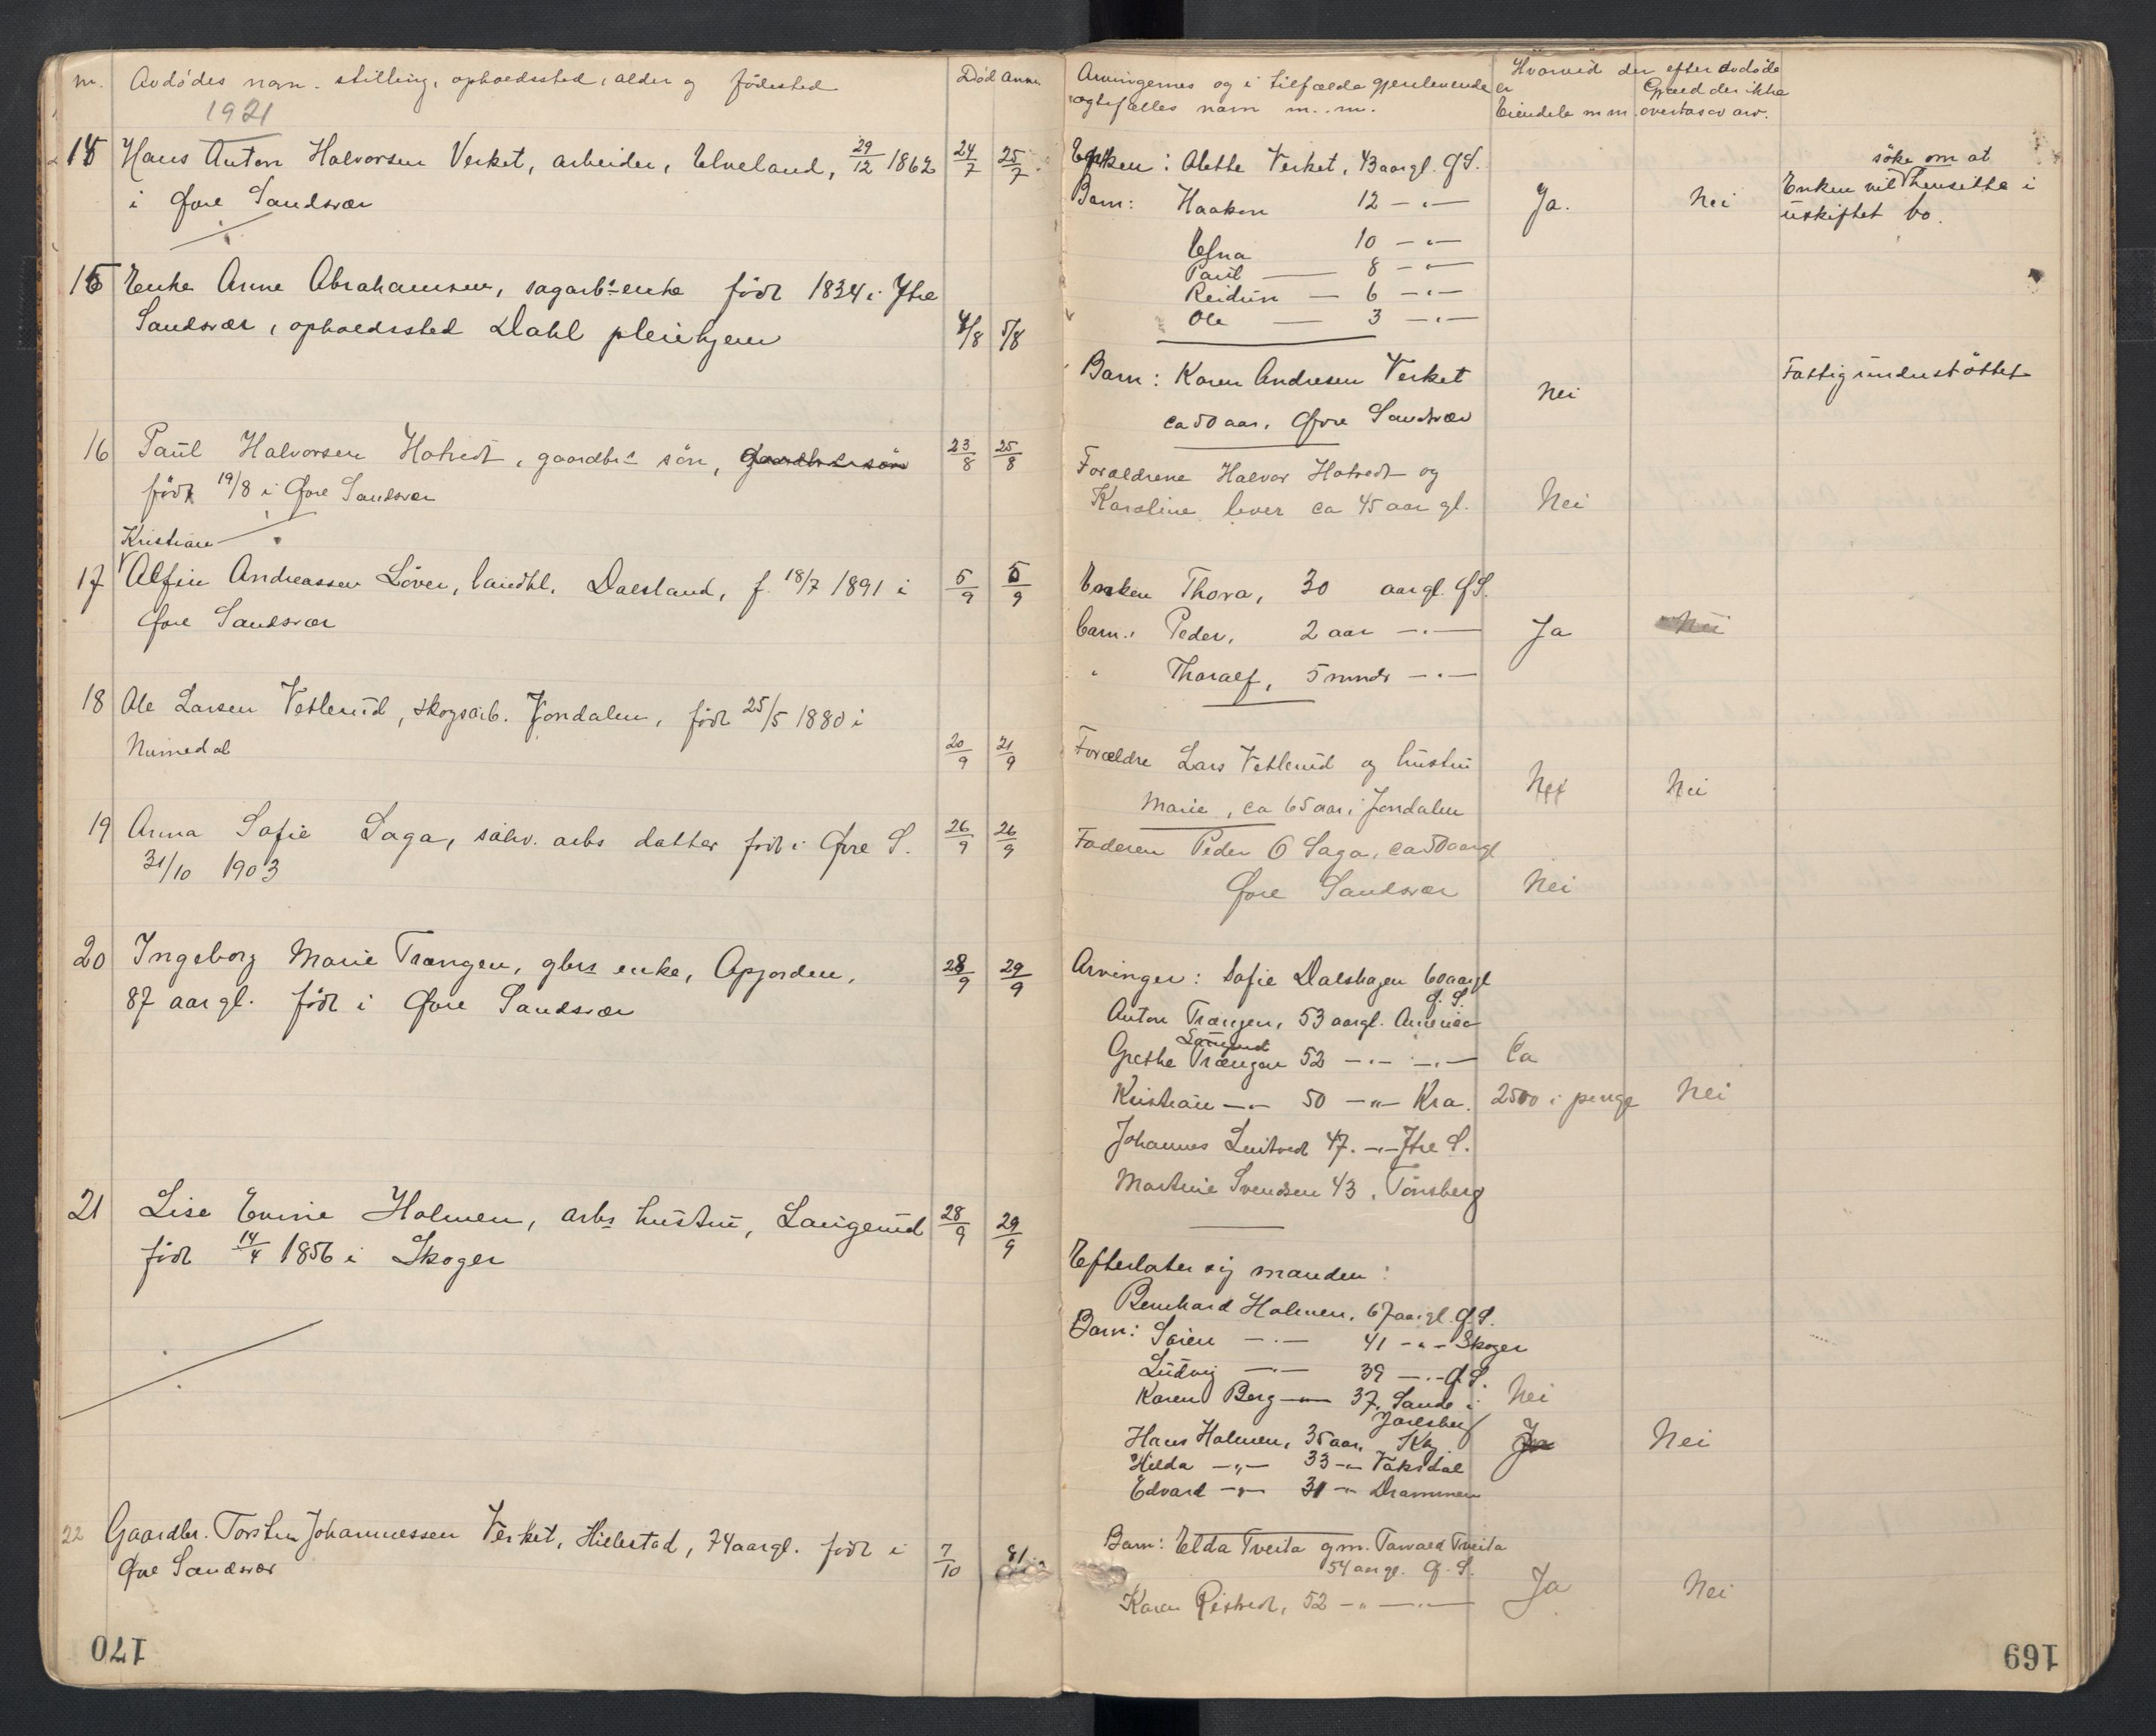 nr. Avdødes navn, stilling, opholdssted, alder og fødested Død Anm.
1921
14 Hans Anton Halvorsen Verket, arbeider, Elveland, 29/12 1862 24/7 25/7
i Øvre Sandsvær
15 Enke Anne Abrahamsen, sagarbs enke født 1834 i Ytre
Sandsvær, opholdssted Dahl pleiehjem 4/8 5/8
16 Paul Halvorsen Hotvedt, gaardbrs søn, gaardbrs søn 23/8 25/8
født 19/8 i Øvre Sandsvær
Kristian
17 Alfin Andreassen Løver, landhl. Daesland, f. 18/7 1891 i 5/9 5/9
Øvre Sandsvær
18 Ole Larsen Vetlerud, skogsarb. Jondalen, født 25/5 1880 i
Numedal 20/9 21/9
19 Anna Sofie Saga, sølv. arbs datter født i Øvre S. 26/9 26/9
31/10 1903
20 Ingeborg Marie Trængen, gbrs enke, Apjorden, 28/9 29/9
87 aar gl. født i Øvre Sandsvær
21 Lise Evine Holmen, arbs hustru, Laugerud 28/9 29/9
født 14/4 1856 i Skoger
22 Gaardbr. Torsten Johannessen Verket, Hillestad, 74 aar gl. født i 7/10 81
Øvre Sandsvær
170
Arvingernes og i tilfælde gjenlevende
ægtefælles navn m. m.
Hvorvid der efter avdøde
er
Eiendele m m. Gjæld der ikke
overtas av arv.
Enken: Alette Verket, 43 aar gl. Ø S.
Barn: Haakon 12 - " - Ja. Nei Enken vil søke om at hensitte i
uskiftet bo.
Edna 10 - " -
Paul 8 - " -
Reidun 6 - " -
Ole 3 - " -
Barn: Karen Andresen Verket Nei Fattigunderstøttet
ca 50 aar, Øvre Sandsvær
Forældrene Halvor Hotvedt og
Karoline lever ca 45 aar gl. Nei
Enken Thora, 30 aar gl. Ø S.
barn: Peder, 2 aar - " - Ja Nei
" Thoralf, 5 mndr - " -
Forældre Lars Vetlerud og hustru
Marie, ca 65 aar i Jondalen Nei Nei
Faderen Peder O Saga, ca 50 aar gl
Øvre Sandsvær Nei
Arvinger: Sofie Dalshagen 60 aar gl
Ø. S.
Anton Trængen, 53 aar gl. Amerika
Laugerud
Grethe Trængen 52 - " - - " - Ca
Kristian - " - 50 - " - Kra. 2500 i penge Nei
Johannes Lintvedt 47. - " - Ytre S.
Martine Svendsen 43, Tønsberg
Efterlater sig manden:
Bernhard Holmen, 67 aar gl. Ø. S.
Barn: Søren - " - 41 - " - Skoger
Ludvig - " - 39 - " - Ø. S.
Karen Berg - " - 37, Sande i Nei
Jarlsberg
Hans Holmen, 35 aar, Kbg Ja Nei
Hilda - " - 33 - " - Vaksdal
Edvard - " - 31 - " - Drammen
Barn: Elda Tveita gm. Tarvald Tveita
54 aar gl. Ø. S.
Karen Ristvedt, 52 - " - - " - Ja Nei
169